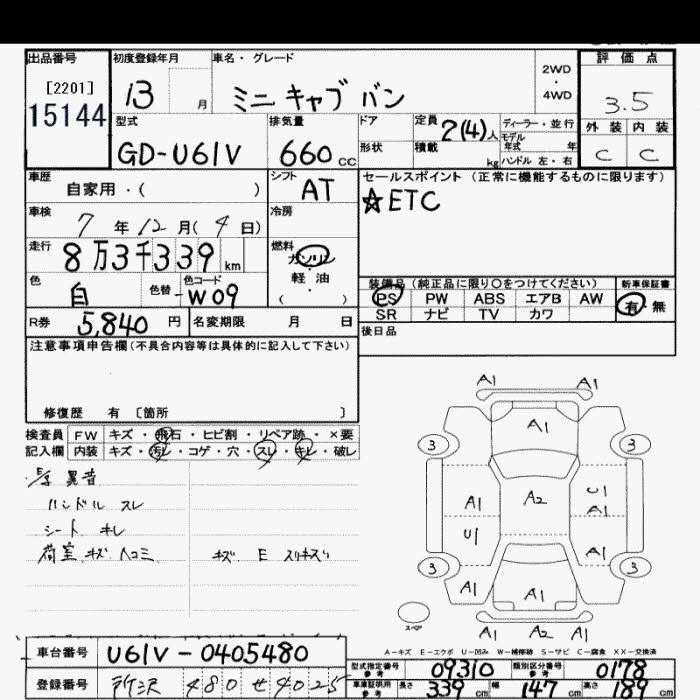 出品番号
[2201]
15144
初度登録年月
13 月
車名・グレード
ミニキャブ バン
2WD
4WD
評価点
3.5
外装 内装
C C
型式
GD-U61V
排気量
660 CC
ドア
形状
定員
2(4)人
積載
kg
ディーラー・並行
モデル
年式 年
ハンドル 左・右
車歴
自家用・( )
シフト
AT
セールスポイント (正常に機能するものに限ります)
☆ETC
車検
7年12月(4日)
冷房
走行
8万3千339km
燃料
ガソリン
軽油
( )
色
白
色替
色コード
-W09
装備品(純正品に限り○をつけてください)
PS PW ABS エアB AW
SR ナビ TV カワ
新車保証書
有・無
R券
5,840円
名変期限 月 日
後日品
注意事項申告欄(不具合内容等は具体的に記入して下さい)
修復歴 有 〔箇所 〕
検査員
記入欄
FW キズ・飛石・ヒビ割・リペア跡・×要
内装 キズ・汚レ・コゲ・穴・スレ・キレ・破レ
異音
ハンドル スレ
シート キレ
荷室 キズ ヘコミ
キズ E スリキズ
A1 A1
A1
3 3
A1 A2 U1
A1
U1 A1
3 3
A1 A1 A1
A1 A2 A1
スペア
A-キズ E-エクボ U-凹み W-補修跡 S-サビ C-腐食 XX-交換済
車台番号
U61V-0405480
登録番号
所沢 480 せ 4025
型式指定番号
参考
09310
類別区分番号
参考
0178
車庫証明用
参考
長さ 339 cm
幅 147 cm
高さ 189 cm